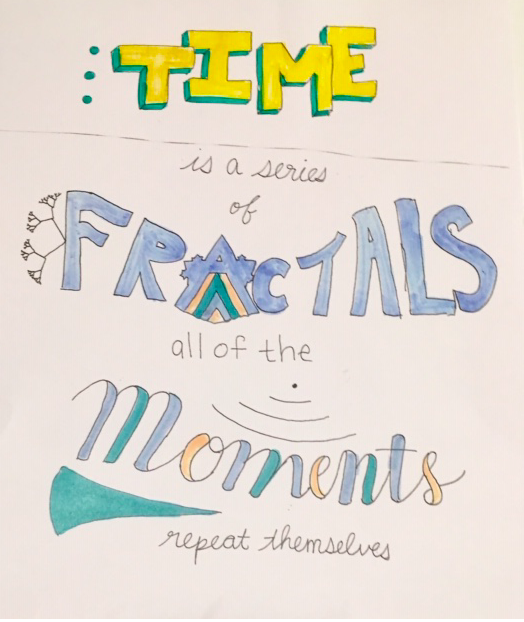 TIME
is a series
of
FRACTALS
all of the
Moments
repeat themselves